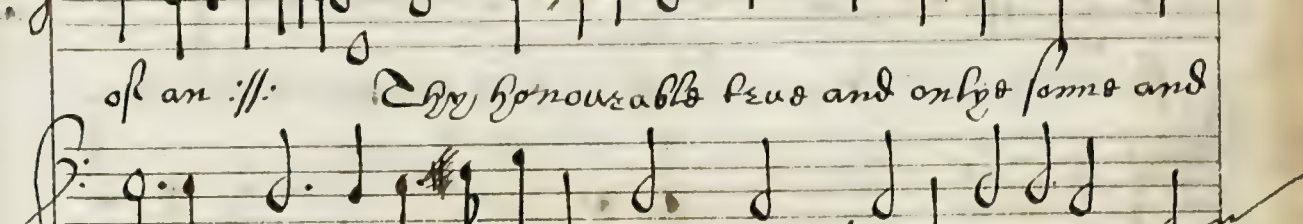 of an :||: Thy honourable true and onlye sonne and